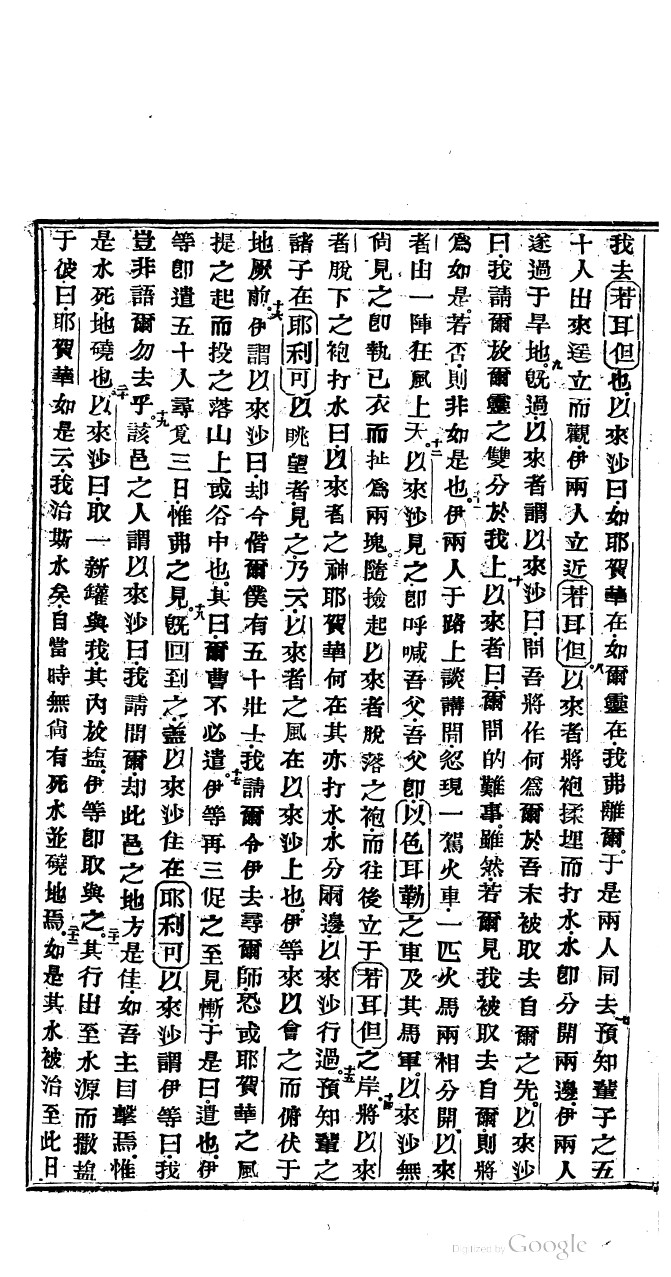 我去若耳但也以來沙曰如耶賀華在如爾靈在我弗離爾于是兩人同去七預知輩子之五
十人出來遥立而觀伊兩人立近若耳但八以來者將袍揉埋而打水水即分開兩邊伊兩人
遂過于旱地九旣過以來者謂以來沙曰問吾將作何爲爾於吾未被取去自爾之先以來沙
曰我請爾放爾靈之雙分於我上十以來者曰爾問的難事雖然若爾見我被取去自爾則將
爲如是若否則非如是也十一伊兩人于路上談講間忽現一駕火車一匹火馬兩相分開以來
者由一陣狂風上天十二以來沙見之即呼喊吾父吾父即以色耳勒之車及其馬軍以來沙無
尙見之即執己衣而扯爲兩塊十三隨撿起以來者脫落之袍而往後立于若耳但之岸十四將以來
者脫下之袍打水曰以來者之神耶賀華何在其亦打水水分兩邊以來沙行過十五預知輩之
諸子在耶利可以眺望者見之乃云以來者之風在以來沙上也伊等來以會之而俯伏于
地厥前十六伊謂以來沙曰却今偕爾僕有五十壯士我請爾令伊去尋爾師恐或耶賀華之風
提之起而投之落山上或谷中也其曰爾曹不必遣十七伊等再三促之至見慚于是曰遣也伊
等即遣五十人尋覓三日惟弗之見十八旣回到之蓋以來沙住在耶利可以來沙謂伊等曰我
豈非語爾勿去乎十九該邑之人謂以來沙曰我請問爾却此邑之地方是佳如吾主目擊焉惟
是水死地磽也二十以來沙曰取一新罐與我其內放塩伊等即取與之二十一其行出至水源而撒塩
于彼曰耶賀華如是云我治斯水矣自當時無尙有死水並磽地焉二十二如是其水被治至此日
Digitized by Google